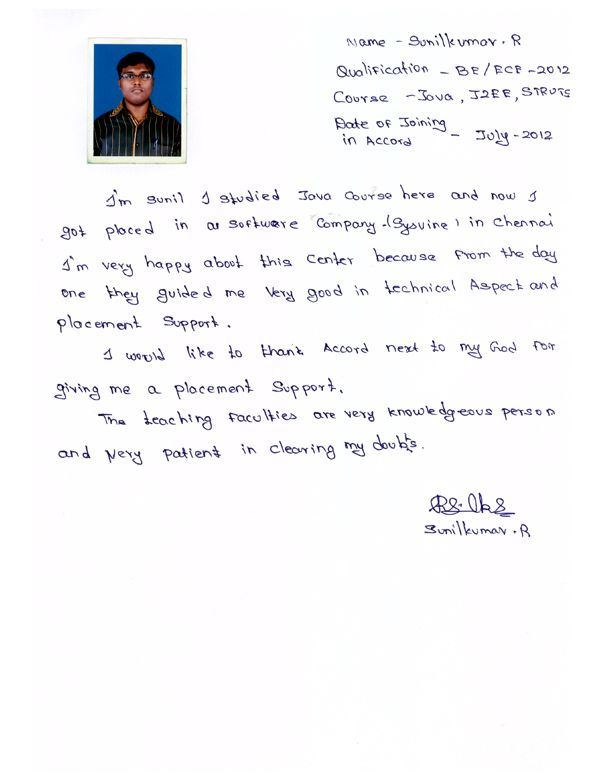 Name - Sunilkumar.R
Qualification - BE/ECE-2012
Course - Java, J2EE, STRUTS
Date of Joining
in Accord - July-2012
I'm Sunil I studied Java Course here and now I
got placed in a Software Company-(Sysvine) in Chennai
I'm very happy about this Center because from the day
one they guided me very good in technical Aspect and
placement Support.
I would like to thank Accord next to my God for
giving me a placement Support.
The teaching faculties are very knowledgeous person
and very patient in clearing my doubts.
Sunilkumar.R